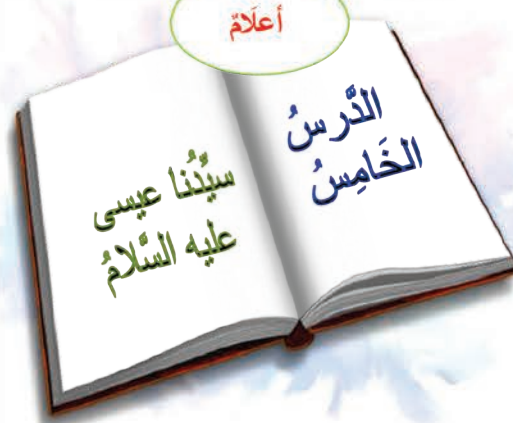 أعلَامٌ
الدَّرسُ
الخَامِسُ
سيِّدُنا عيسى
عليه السَّلامُ